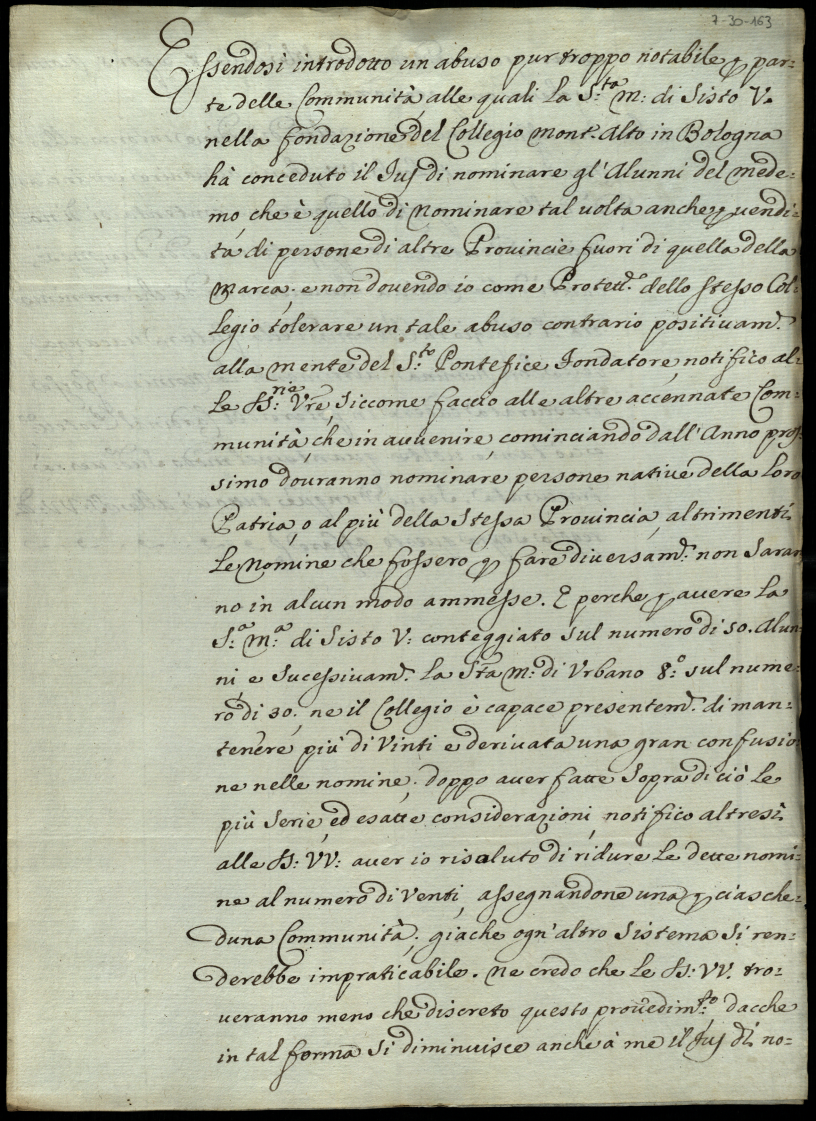 7-30-163
Essendosi introdotto un abuso pur troppo notabile p par-
te delle Communità, alle quali la S:ta m: di Sisto V.
nella fondazione del Collegio Mont'Alto in Bologna
hà conceduto il Jus di nominare gl'Alunni del mede-
mo, che è quello di nominare tal volta anche p vendi-
ta di persone di altre Provincie fuori di quella della
Marca; e non dovendo io come Protett.e dello stesso Col-
legio tolerare un tale abuso contrario positivam.e
alla mente del S:to Pontefice Fondatore, notifico al-
le SS:rie Vre, siccome faccio alle altre accennate Com-
munità, che in avvenire, cominciando dall'Anno pros-
simo douranno nominare persone native della loro
Patria, o al più della stessa Provincia, altrimenti
le Nomine che fossero p fare diversam.e non saran
no in alcun modo ammesse. E perche p avere la
S:a M:a di Sisto V: conteggiato sul numero di 50. Alun-
ni, e sucessivam.e la Sta m: di Urbano 8:o sul nume-
ro di 30; ne il Collegio è capace presentem.e di man-
tenere più di Vinti è derivata una gran confusio-
ne nelle nomine; doppo aver fatte sopra di ciò le
più serie, ed esatte considerazioni, notifico altresì
alle SS: VV: aver io risoluto di ridure le dette nomi-
ne al numero di Venti, assegnandone una p ciasche-
duna Communità; giache ogn'altro sistema si ren-
derebbe impraticabile. Ne credo che le SS: VV. tro-
veranno meno che discreto questo provedim:to dacche
in tal forma si diminuisce anche à me il Jus di no=